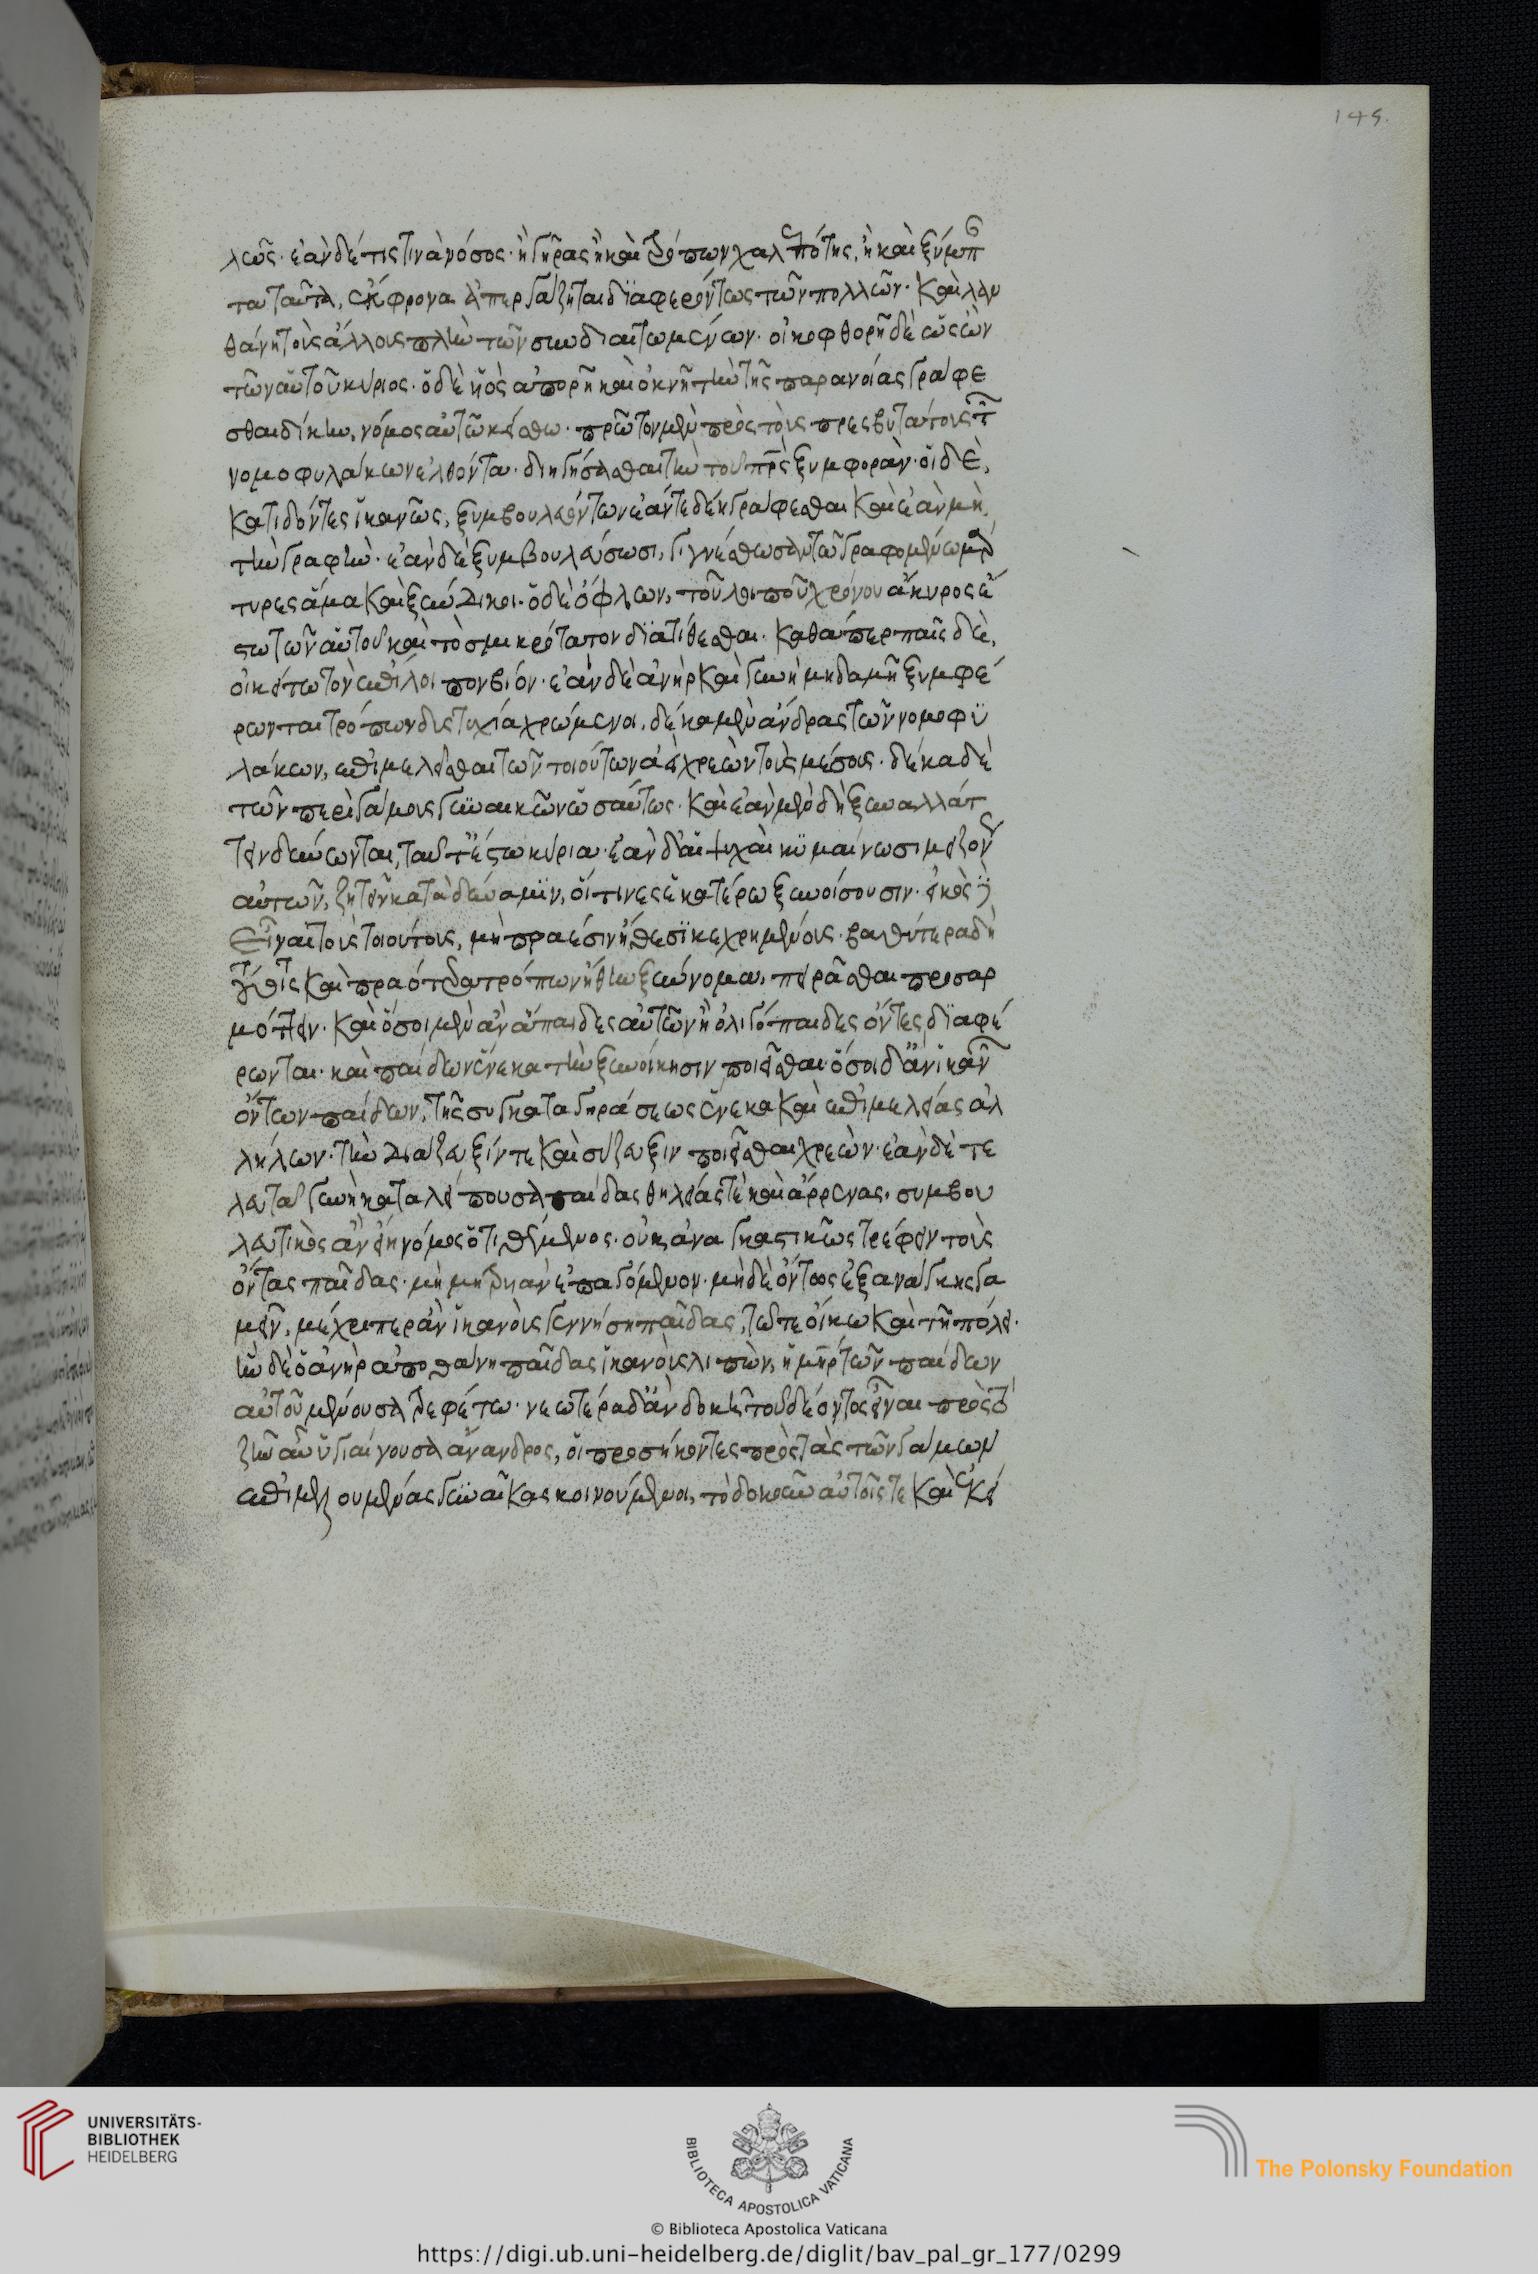 145.
λεῶς. ἐὰν δέ τις τινὰ νόσος. ἢ γῆρας ἢ καὶ τρόπων χαλεπότης, ἢ καὶ ξύμπαν
τα ταῦτα, ἔκφρονα ἀπεργάζηται διαφερόντως τῶν πολλῶν. καὶ λαν
θάνῃ τοὺς ἄλλους πλὴν τῶν συνδιαιτωμένων. οἰκοφθορῇ δὲ ὡς ὢν
τῶν αὑτοῦ κύριος. ὁ δὲ ὑὸς ἀπορῇ καὶ ὀκνῇ τὴν τῆς παρανοίας γράφε
σθαι δίκην, νόμος αὐτῷ κείσθω. πρῶτον μὲν πρὸς τοὺς πρεσβυτάτους τῶν
νομοφυλάκων ἐλθόντα. διηγήσασθαι τὴν τοῦ πρς ξυμφοράν. οἱ δὲ,
κατιδόντες ἱκανῶς, ξυμβουλευόντων ἐάν τε δέῃ γράφεσθαι καὶ ἐὰν μὴ,
τὴν γραφήν. ἐὰν δὲ ξυμβουλεύσωσι, γιγνέσθωσαν τῷ γραφομένῳ μάρ
τυρες ἅμα καὶ ξύνδικοι. ὁ δὲ ὀφλων, τοῦ λοιποῦ χρόνου ἄκυρος ἔ
στω τῶν αὑτοῦ καὶ τὸ σμικρότατον διατίθεσθαι. καθάπερ παῖς δὲ,
οἰκείτω τὸν ἐπίλοιπον βίον. ἐὰν δὲ ἀνὴρ καὶ γυνὴ μηδαμῇ ξυμφέ
ρωνται τρόπων δυστυχίᾳ χρώμενοι, δέκα μὲν ἄνδρας τῶν νομοφυ
λάκων, ἐπιμελεῖσθαι τῶν τοιούτων ἀεὶ χρεὼν τοὺς μέσους. δέκα δὲ
τῶν περὶ γάμους γυναικῶν ὡσαύτως. καὶ ἐὰν μὲν δὴ ξυναλλάτ
τειν δύνωνται, ταῦτ' ἔστω κύρια. ἐὰν δ' αἱ ψυχαὶ κυμαίνωσι μεῖζον
αὐτῶν, ζητεῖν κατὰ δύναμιν, οἵτινες ἑκατέρῳ ξυνοίσουσιν. εἰκὸς δὲ
εἶναι τοὺς τοιούτους, μὴ πραέσιν ἤθεσι κεχρημένους. βαθύτερα δὴ
τούτοις καὶ πραότερα τρόπων ἤθη ξύννομα, πειρᾶσθαι προσαρ
μόττειν. καὶ ὅσοι μὲν ἂν ἄπαιδες αὐτῶν ἢ ὀλιγόπαιδες ὄντες διαφέ
ρωνται. καὶ παίδων ἕνεκα τὴν ξυνοίκησιν ποιεῖσθαι. ὅσοι δ' ἂν ἱκανῶν
ὄντων παίδων, τῆς συγκαταγηράσεως ἕνεκα καὶ ἐπιμελείας ἀλ
λήλων. τὴν διάζευξίν τε καὶ σύζευξιν ποιεῖσθαι χρεών. ἐὰν δὲ τε
λευτᾷ γυνὴ καταλείπουσα παῖδας θηλείας τὲ καὶ ἄρρενας, συμβου
λευτικὸς ἂν εἴη νόμος ὁ τιθέμενος. οὐκ ἀναγκαστικῶς τρέφειν τοὺς
ὄντας παῖδας. μὴ μητρυιὰν ἐπαγόμενον. μὴ δὲ ὄντος ἐξ ἀνάγκης γα
μεῖν, μέχριπερ ἂν ἱκανοὺς γεννήσῃ παῖδας, τῷ τε οἴκῳ καὶ τῇ πόλει.
ἢν δὲ ὁ ἀνὴρ ἀποθάνῃ παῖδας ἱκανοὺς λιπών, ἡ μηρ τῶν παίδων
αὐτοῦ μένουσα τρεφέτω. νεωτέρα δ' ἂν δοκῇ τοῦ δέοντος εἶναι πρὸς τὸ
ζῆν ἂν ὑγιαίνουσα ἄνανδρος, οἱ προσήκοντες πρὸς τὰς τῶν γάμων
ἐπιμελουμένας γυναῖκας κοινούμενοι, τὸ δοκοῦν αὐτοῖς τε καὶ ἐκεί
UNIVERSITÄTS-
BIBLIOTHEK
HEIDELBERG
BIBLIOTECA APOSTOLICA VATICANA
The Polonsky Foundation
© Biblioteca Apostolica Vaticana
https://digi.ub.uni-heidelberg.de/diglit/bav_pal_gr_177/0299